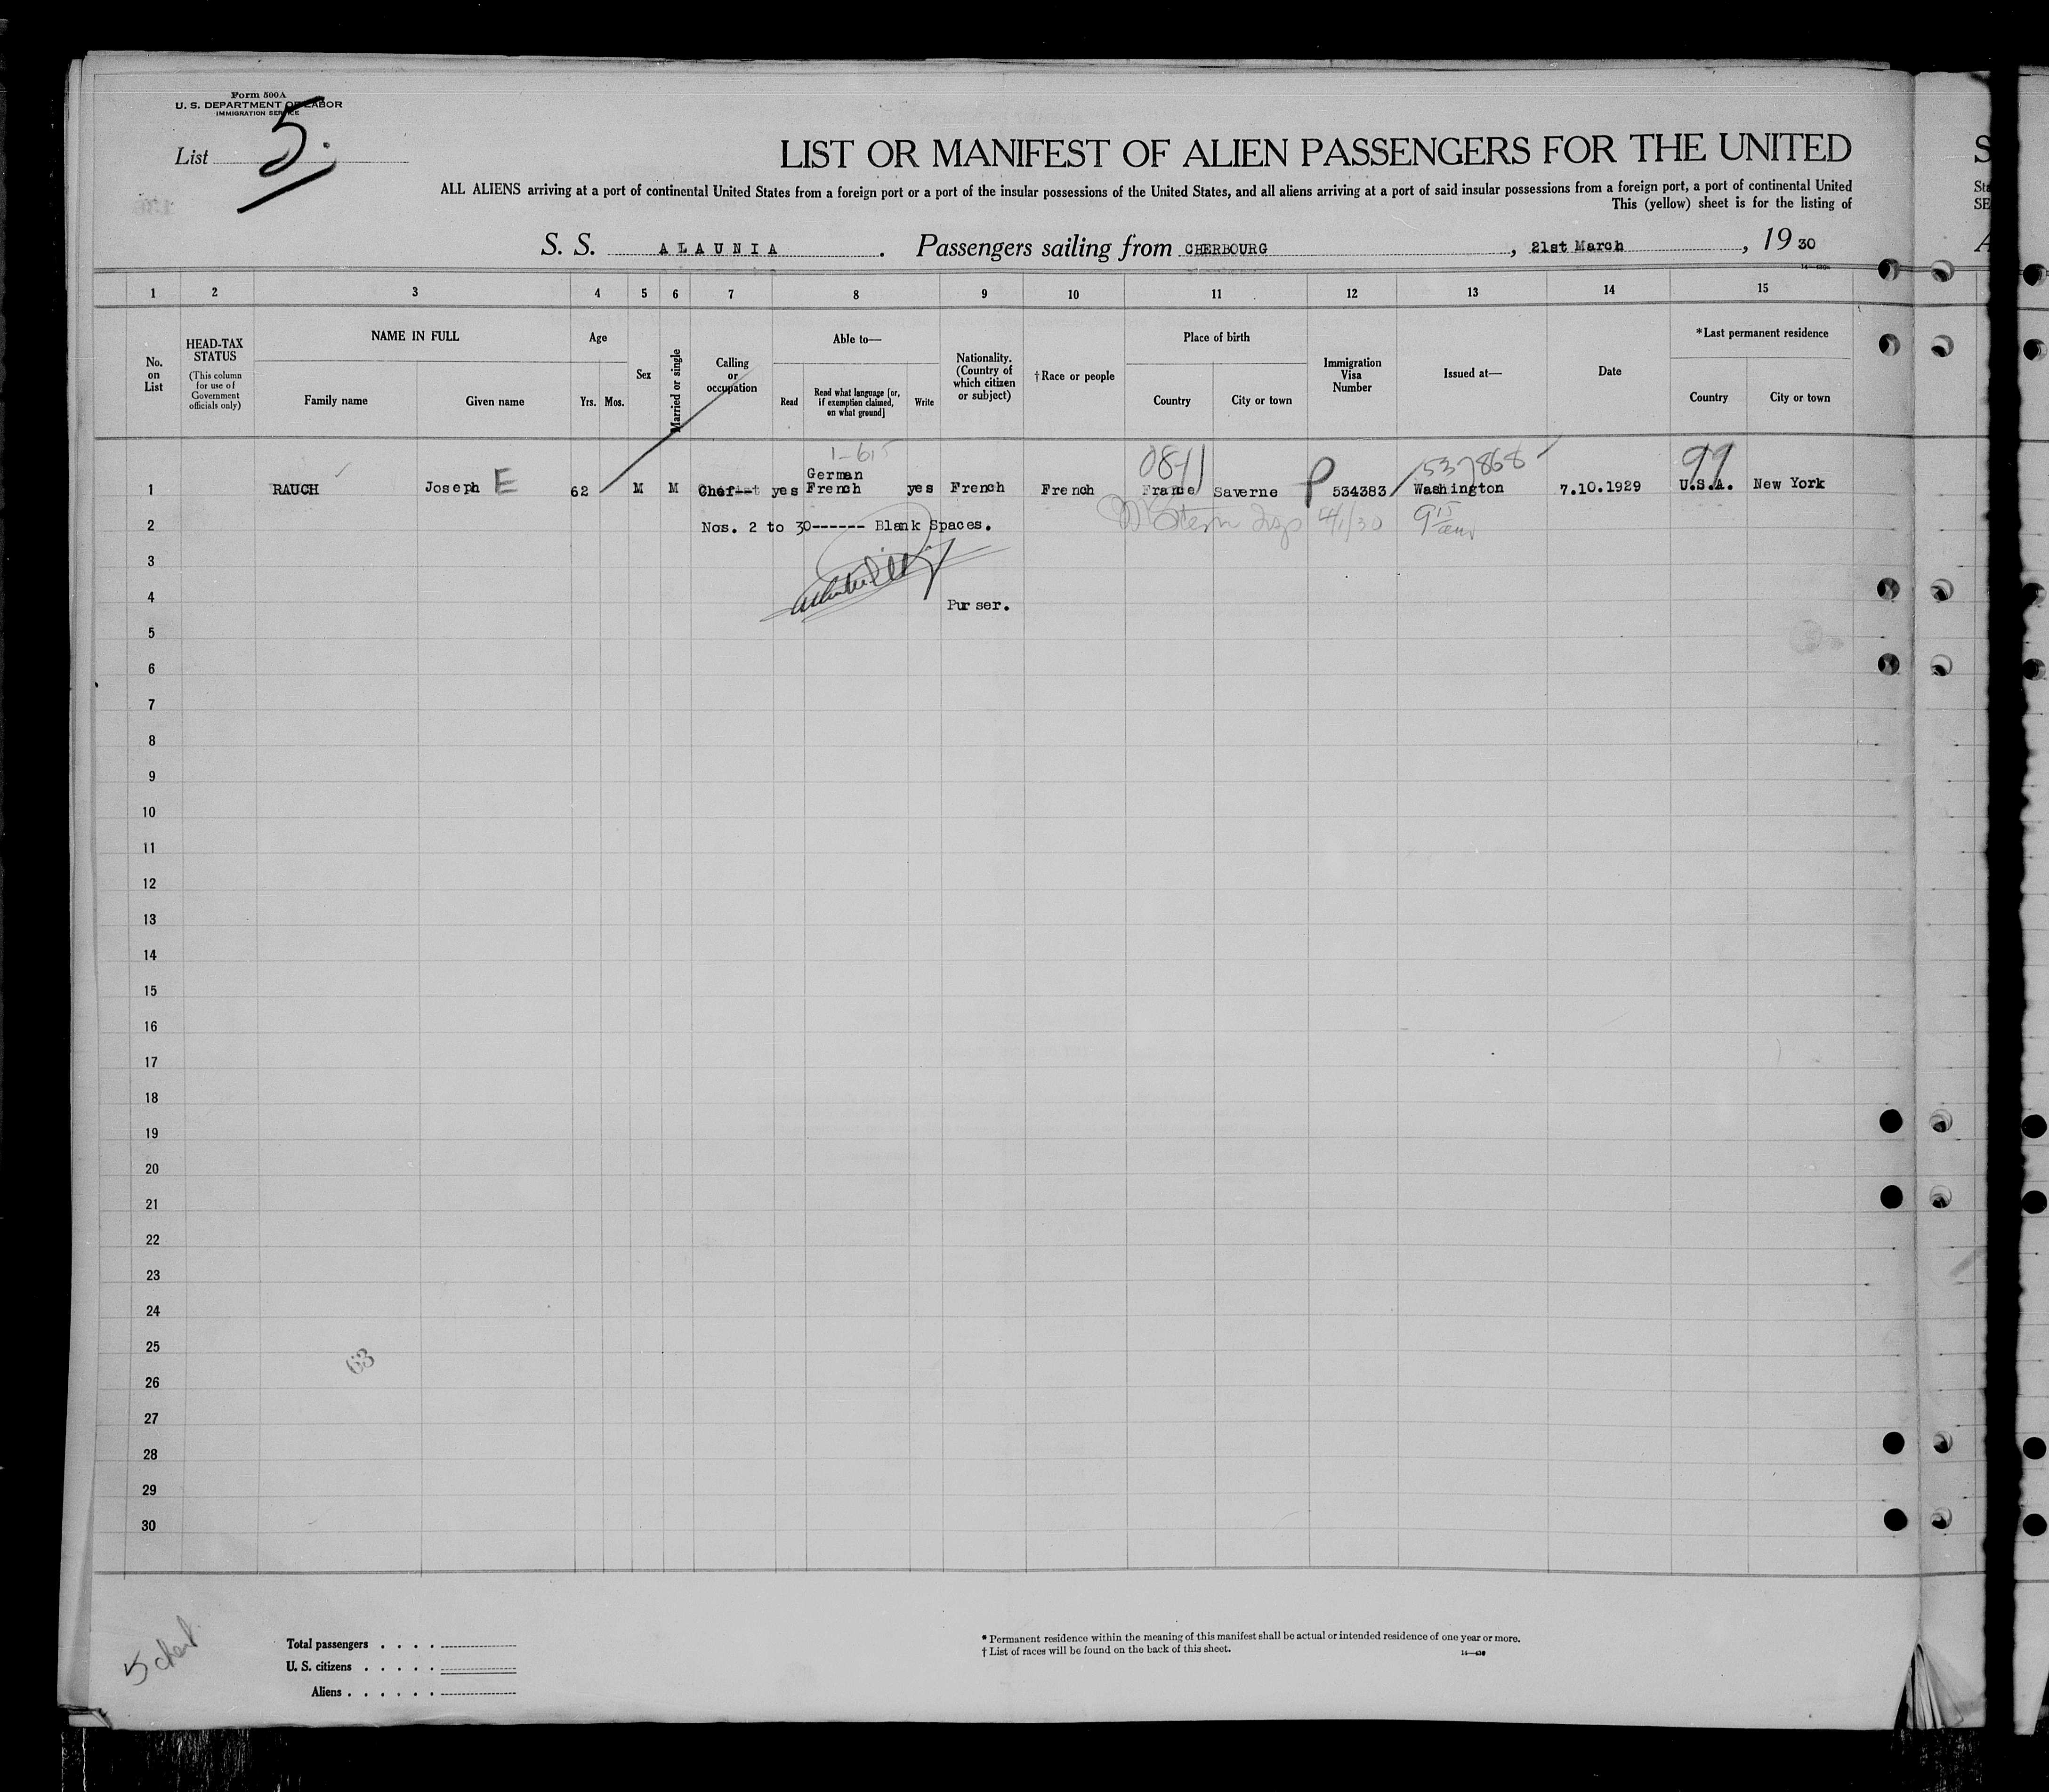 Form 500A
U. S. DEPARTMENT OF LABOR
IMMIGRATION SERVICE
List 5.
LIST OR MANIFEST OF ALIEN PASSENGERS FOR THE UNITED
ALL ALIENS arriving at a port of continental United States from a foreign port or a port of the insular possessions of the United States, and all aliens arriving at a port of said insular possessions from a foreign port, a port of continental United
This (yellow) sheet is for the listing of
S. S. ALAUNIA. Passengers sailing from CHERBOURG, 21st March, 19 30
1 2 3 4 5 6 7 8 9 10 11 12 13 14 15
No. on List
HEAD-TAX STATUS
(This column for use of Government officials only)
NAME IN FULL
Family name Given name
Age
Yrs. Mos.
Sex
Married or single
Calling or occupation
Able to—
Read Read what language [or, if exemption claimed, on what ground] Write
Nationality. (Country of which citizen or subject)
† Race or people
Place of birth
Country City or town
Immigration Visa Number
Issued at—
Date
*Last permanent residence
Country City or town
1-615 084 537868 99
German
1 RAUCH Joseph E 62 M M Chef yes French yes French French France Saverne P 534383 Washington 7.10.1929 U.S.A. New York
2 Nos. 2 to 30------ Blank Spaces. 4/1/30 9
3
4 Purser.
5
6
7
8
9
10
11
12
13
14
15
16
17
18
19
20
21
22
23
24
25
63
26
27
28
29
30
Total passengers . . . .
U. S. citizens . . . . .
Aliens . . . . . .
* Permanent residence within the meaning of this manifest shall be actual or intended residence of one year or more.
† List of races will be found on the back of this sheet.